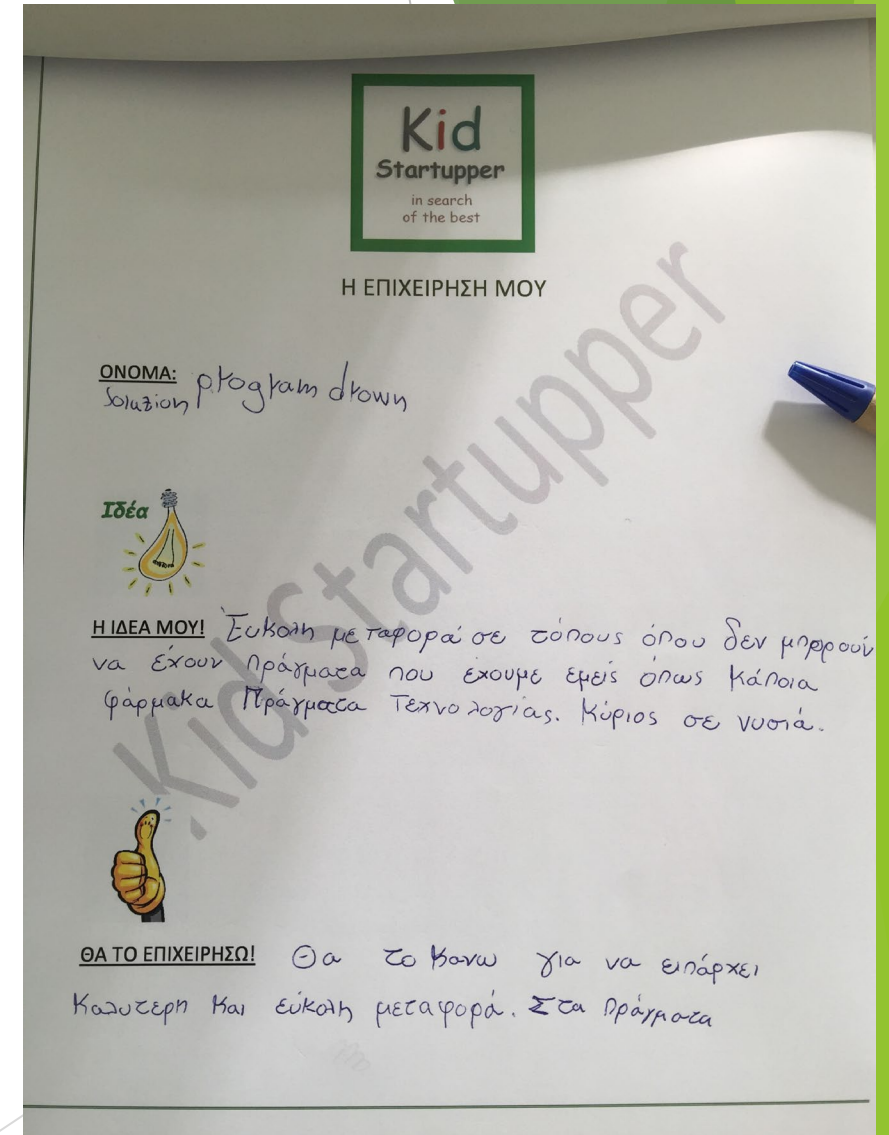 Kid
Startupper
in search
of the best
Η ΕΠΙΧΕΙΡΗΣΗ ΜΟΥ
ΟΝΟΜΑ: program drown
Soluzion
Ιδέα
Η ΙΔΕΑ ΜΟΥ! Εύκολη μεταφορά σε τόπους όπου δεν μπορούν
να έχουν πράγματα που έχουμε εμείς όπως κάποια
φάρμακα Πράγματα Τεχνολογίας. Κύριος σε νυσιά.
ΘΑ ΤΟ ΕΠΙΧΕΙΡΗΣΩ! Θα το κανω για να ειπάρχει
Καλυτερη και εύκολη μεταφορά. Στα πράγματα
Kid Startupper